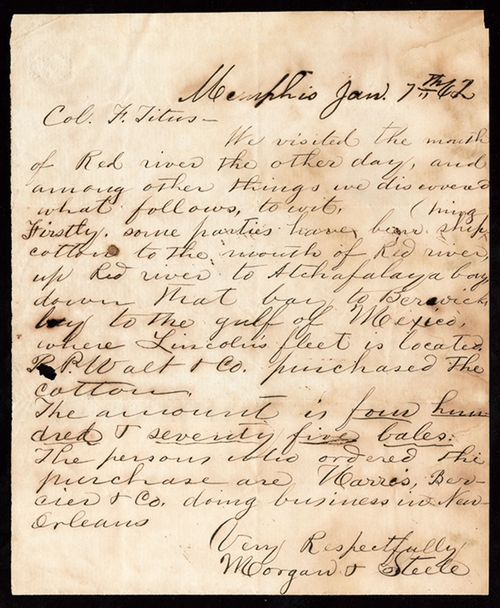 Memphis Jan. 7th 62
Col. F. Titus -
We visited the mouth
of Red river the other day, and
among other things we discovered
what follows, to wit,
Firstly, some parties have been ship(ping
cotton to the mouth of Red river,
up Red river to Atchafalaya bay
down that bay to Berwick
bay to the gulf of Mexico,
where Lincoln's fleet is located
R. P. Walt & Co. purchased the
cotton.
The amount is four hun
dred & seventy five bales.
The persons who ordered the
purchase are Harris, Ber-
cier & Co. doing business in New-
Orleans
Very Respectfully
Morgan & Steele